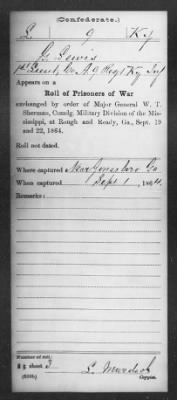 (Confederate.)
L 9 Ky
G. Lewis
1st Lieut, Co. A, 9 Regt Ky Inf
Appears on a
Roll of Prisoners of War
exchanged by order of Major General W. T.
Sherman, Comdg. Military Division of the Mis-
sissippi, at Rough and Ready, Ga., Sept. 19
and 22, 1864.
Roll not dated.
Where captured Near Jonesboro Ga
When captured Sept 1, 1864.
Remarks:
Number of roll:
sheet 3
L. Murdock
Copyist.